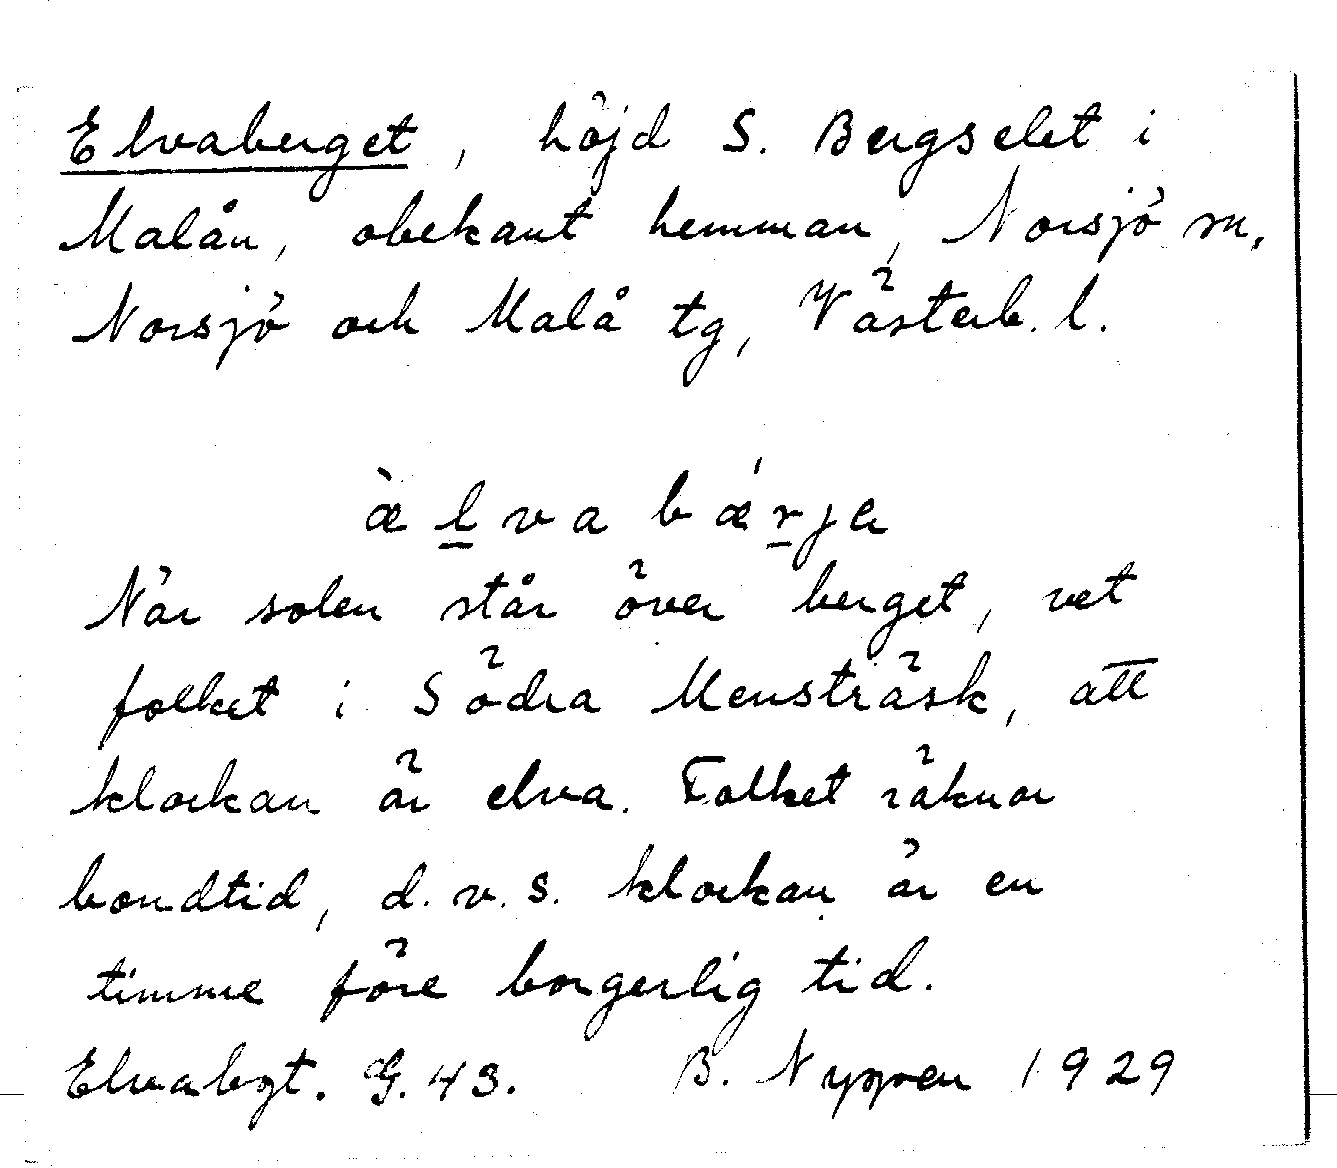 Elvaberget, höjd S. Bergselet i
Malån, obekant hemman, Norsjö sn,
Norsjö och Malå tg, Västerb. l.
æ̀l̲vabǽr̲ja
När solen står över berget, vet
folket i Södra Mensträsk, att
klockan är elva. Folket räknar
bondtid, d.v.s. klockan är en
timme före borgerlig tid.
Elvabgt. G. 43. B. Nyssen 1929